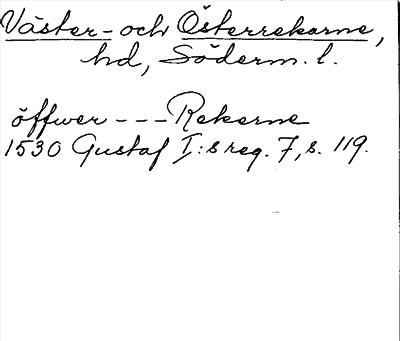 Väster- och Österrekarne,
hd, Söderm. l.
öffwer --- Rekerne
1530 Gustaf I:s reg. 7, s. 119.